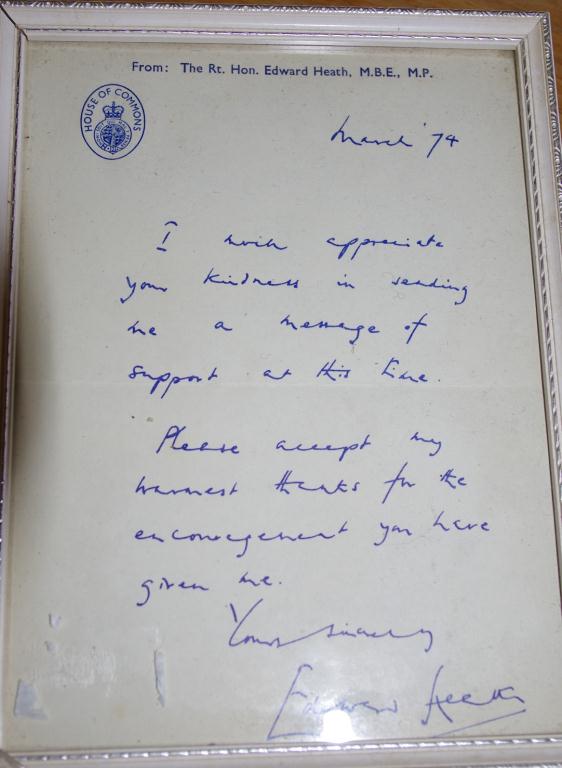 From: The Rt. Hon. Edward Heath, M.B.E., M.P.
HOUSE OF COMMONS
March '74
I much appreciate
your kindness in sending
me a message of
support at this time.
Please accept my
warmest thanks for the
encouragement you have
given me.
Yours sincerely
Edward Heath